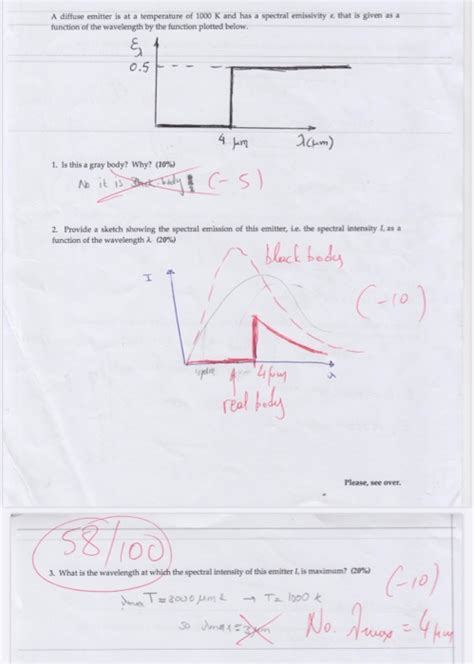 A diffuse emitter is at a temperature of 1000 K and has a spectral emissivity ε, that is given as a
function of the wavelength by the function plotted below.
ελ
0.5
4 μm
λ(μm)
1. Is this a gray body? Why? (10%)
No it is body (-5)
2. Provide a sketch showing the spectral emission of this emitter, i.e. the spectral intensity I, as a
function of the wavelength λ. (20%)
black body
I
(-10)
4μm
λ
real body
Please, see over.
58/100
3. What is the wavelength at which the spectral intensity of this emitter I, is maximum? (20%)
(-10)
λmax T = 3000 μm k → T = 1000 k
so λmax = 3 μm
No. λmax = 4 μm